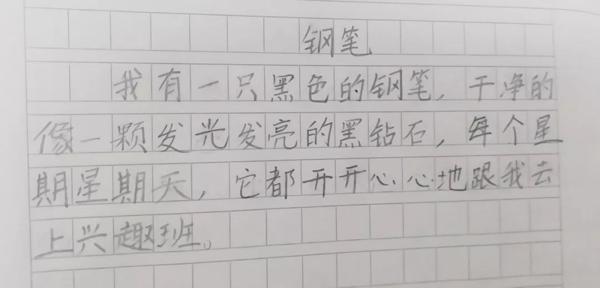 钢笔
我有一只黑色的钢笔，干净的
像一颗发光发亮的黑钻石，每个星
期星期天，它都开开心心地跟我去
上兴趣班。